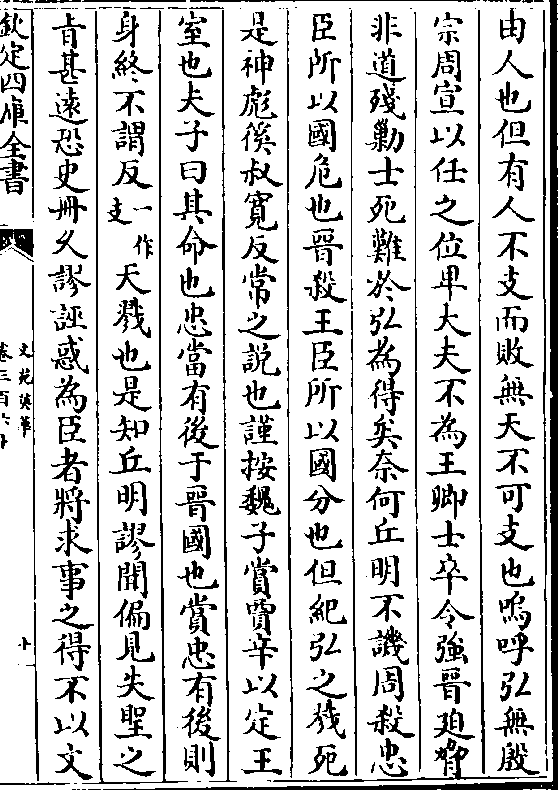 由人也但有人不支而敗無天不可支也嗚呼弘無殷
宗周宣以任之位卑大夫不為王卿士卒令強晉廹脅
非道殘勦士死難於弘為得矣奈何丘明不譏周殺忠
臣所以國危也晉殺王臣所以國分也但紀弘之㦲死
是神彪傒叔寛反常之説也謹按魏子賞賈辛以定王
室也夫子曰其命也忠當有後于晉國也賞忠有後則
身終不謂反一作支天戮也是知丘明謬聞偏見失聖之
㫖甚遠恐史冊乆謬誣惑為臣者將求事之得不以文
欽定四庫全書
文苑英華
卷三百六十
十